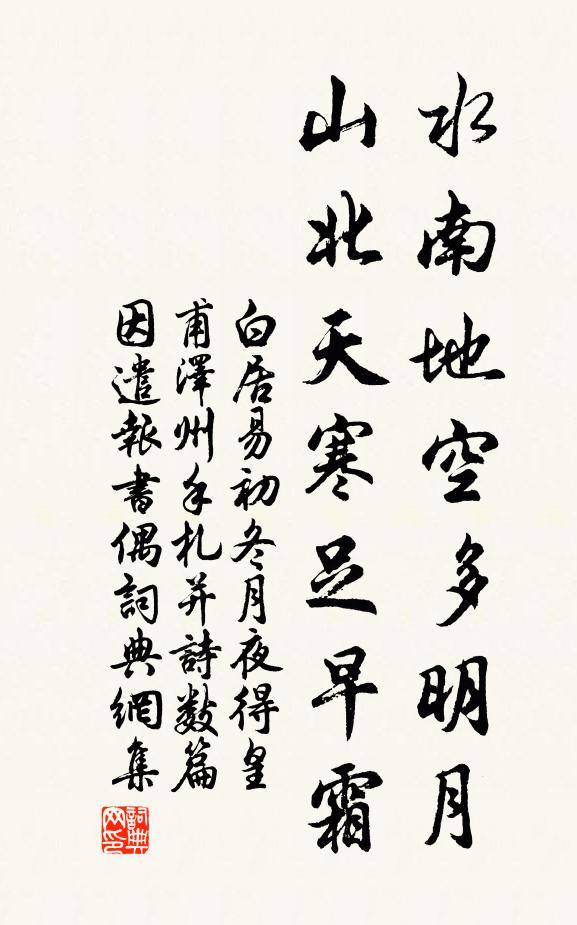 水南地空多明月
山北天寒足早霜
白居易初冬月夜得皇
甫澤州手札并詩數篇
因遣報書偶詞典網集
詞典
网印